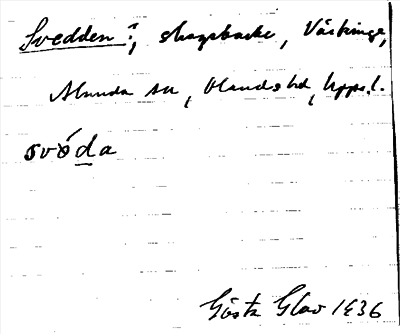 Svedden?, skogsbacke, Västringe,
Alunda sn, Olands hd, Upps.l.
svóda
Gösta Glav 1936